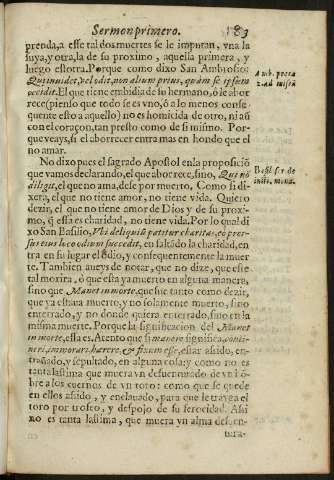 Sermon primero. 183
prenda, a esse tal dos muertes se le imputan, vna la
suya, y otra, la de su proximo, aquella primera, y
luego estotra. Porque como dixo San Ambrosio:
Qui inuidet, vel odit, non alium prius, quàm se ipsum
occidit. El que tiene embidia de su hermano, ò le abor
rece (pienso que todo se es vno, ò a lo menos conse
quente esto a aquello) no es homicida de otro, ni aũ
con el coraçon, tan presto como de si mismo. Por-
que veays, si el aborrecer entra mas en hondo que el
no amar.
No dixo pues el sagrado Apostol en la proposiciõ
que vamos declarando, el que aborrece, sino, Qui nõ
diligit, el que no ama, de se por muerto. Como si di-
xera, el que no tiene amor, no tiene vida. Quiero
dezir, el que no tiene amor de Dios y de su proxi-
mo, q̃ essa es charidad, no tiene vida. Por lo qual di
xo San Basilio, Vbi deliquiũ patitur charitas, cõ
eius loco odium succedit, en faltãdo la charidad, en
tra en su lugar el odio, y consequentemente la muer
te. Tambien aueys de notar, que no dize, que este
tal morira, ò que esta ya muerto en alguna manera,
sino que Manet in morte, que fue tanto como dezir,
que ya estaua muerto, y no solamente muerto, sino
enterrado, y no donde quiera enterrado, sino en la
misma muerte. Porque la significacion del Manet
in morte, essa es. Atento que si manere significa, conti-
neri, immorari, hærere, & fixum esse, estar asido, en-
trañado, y sepultado, en alguna cosa: y como no es
tanta lastima que muera vn desuenturado de vn hõ-
bre a los cuernos de vn toro: como que se quede
en ellos asido, y enclauado, para que le trayga el
toro por trofeo, y despojo de su ferocidad. Assi
no es tanta lastima, que muera vn alma desuen-
tura-
Amb.
2. ad
Basil. ser. de